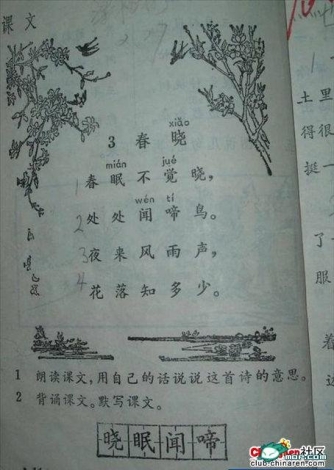 课文
xiǎo
3 春 晓
mián jué
1 春眠不觉晓，
wén tí
2 处处闻啼鸟。
3 夜来风雨声，
4 花落知多少。
1 朗读课文，用自己的话说说这首诗的意思。
2 背诵课文。默写课文。
晓 眠 闻 啼
里
土 很
得
挺
了
服
社区
club.chinaren.com